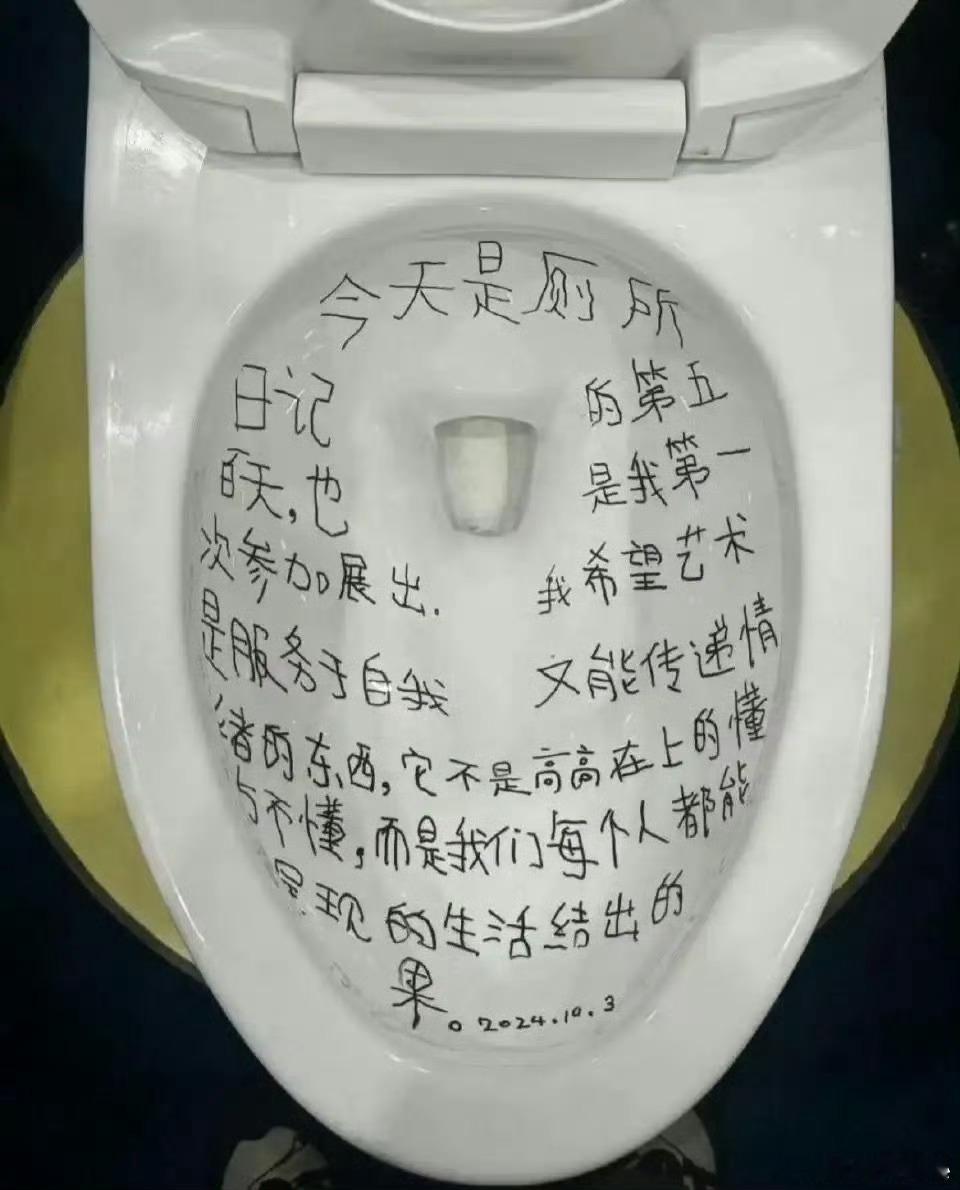 今天是厕所
日记 的第五
百天,也 是我第一
次参加展出. 我希望艺术
是服务于自我 又能传递情
绪的东西,它不是高高在上的懂
与不懂,而是我们每个人都能
呈现的生活结出的
果。2024.10.3